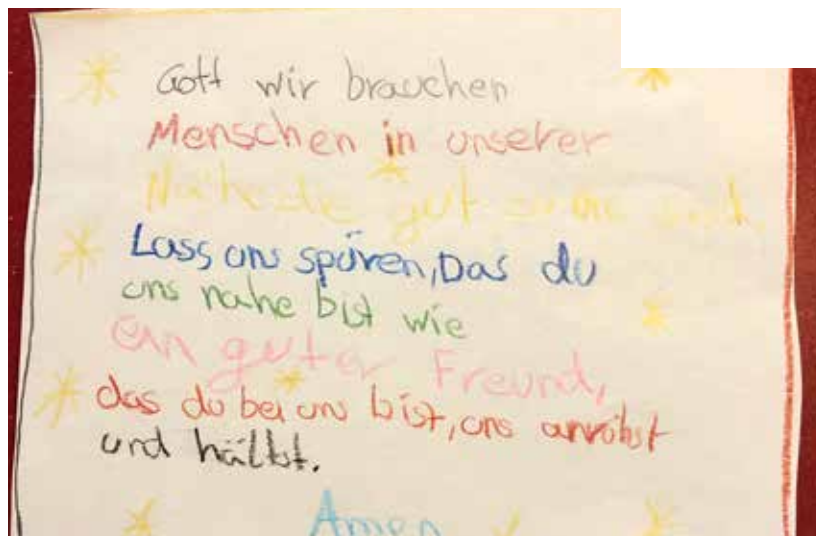 Gott wir brauchen
Menschen in unserer
Nähe die gut
Lass uns spüren, Das du
uns nahe bist wie
ein guter Freund,
das du bei uns bist, uns anrührst
und hältst.
Amen